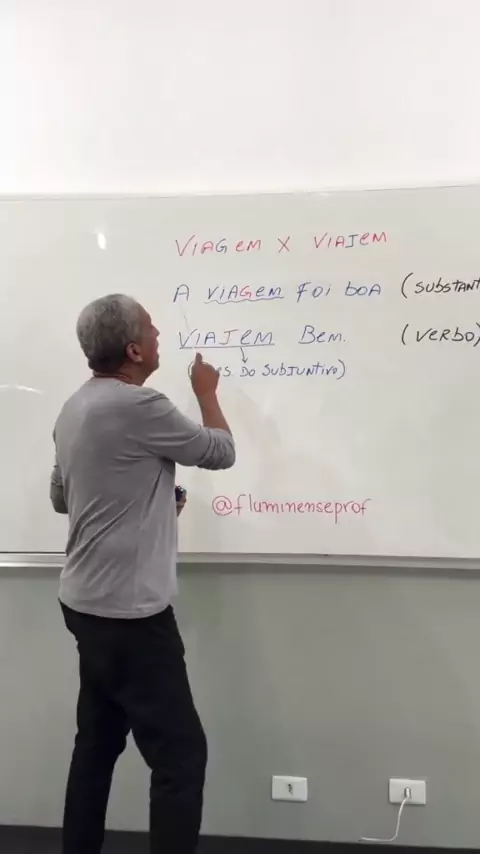 VIAGEM X VIAJEM
A VIAGEM FOI BOA (SUBSTANT
VIAJEM BEM. (VERBO)
DO SUBJUNTIVO)
@fluminenseprof